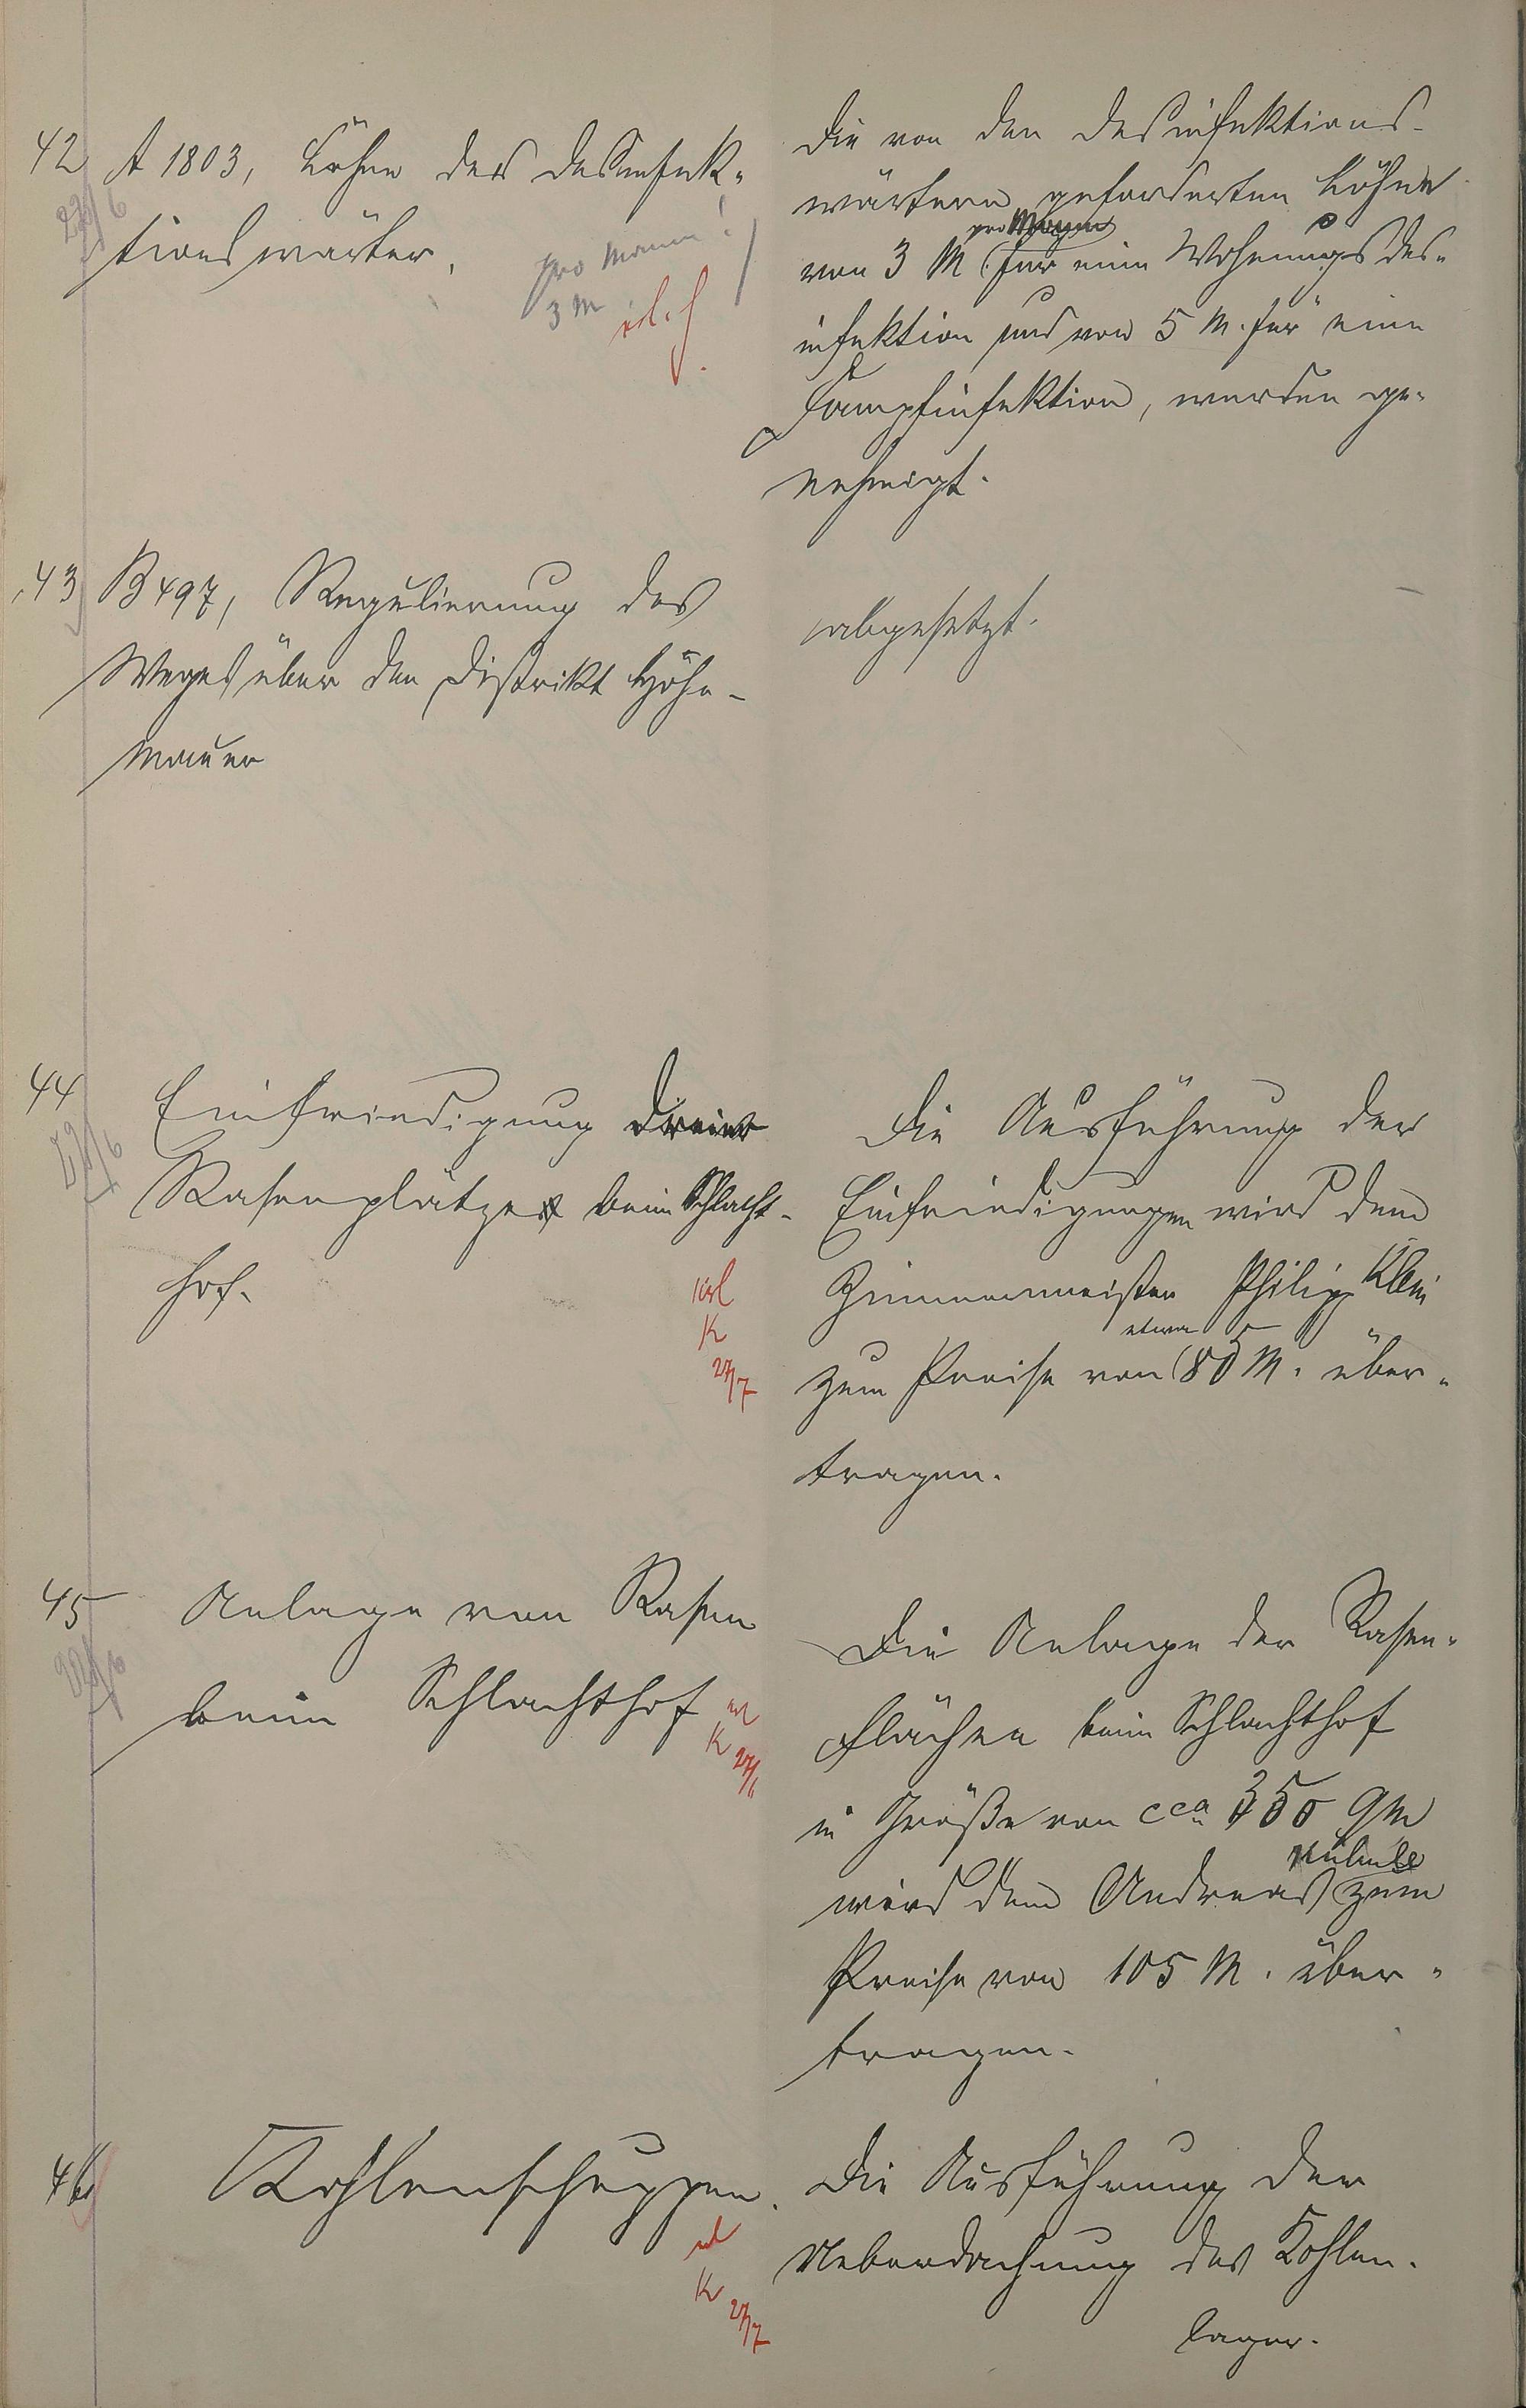 42 A 1803, Löhne der Desinfek-
tionswärter.
pro Mann!
3 M
erl.
Die von den Desinfektions-
wärtern geforderten Löhne
pro Mann
von 3 M für eine Wohnungsdes-
infektion und von 5 M. für eine
Dampfinfektion, werden ge-
nehmigt.
43 B 497, Regulierung des
Weges über den Distrikt Höhe-
mauer
abgesetzt.
44
Einfriedigung dreier
Rasenplätze beim Schlacht-
hof.
erl
K
27/7
Die Ausführung der
Einfriedigungen wird dem
Zimmermeister Philipp Klein
etwa
zum Preise von 85 M. über-
tragen.
45 Anlage von Rasen
beim Schlachthof
erl
K 27/6
Die Anlage der Rasen-
flächen beim Schlachthof
in Größe von cca 350 qm
wird dem Andreas zum
Preise von 105 M. über-
tragen.
46 Kohlenschuppen.
erl
K
27/7
Die Ausführung der
Ueberdachung des Kohlen-
lager.